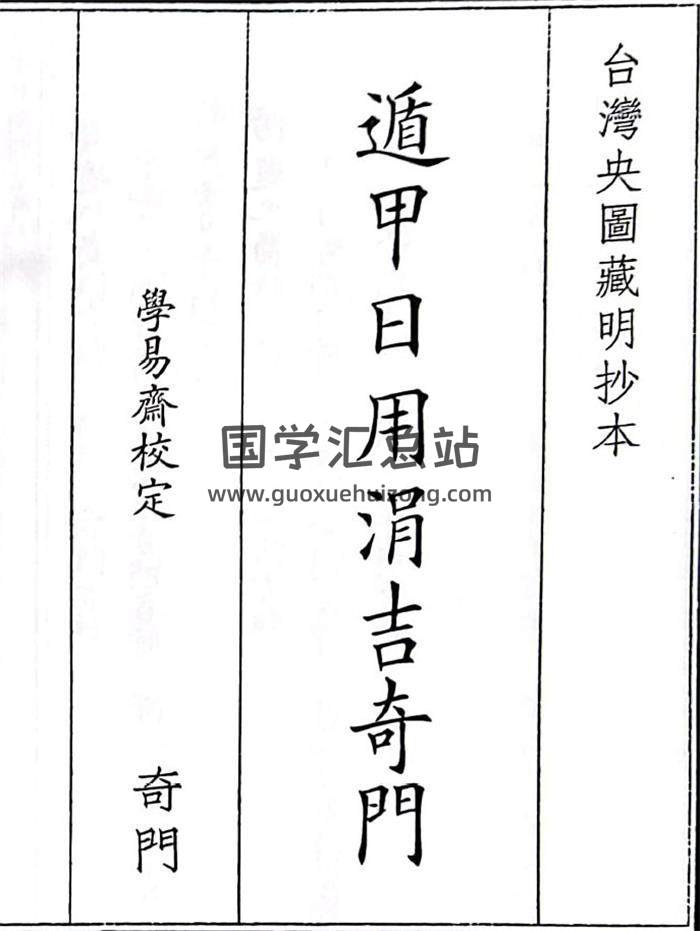 台灣央圖藏明抄本
遁甲日用涓吉奇門
學易齋校定
奇門
国学汇总站
www.guoxuehuizong.com